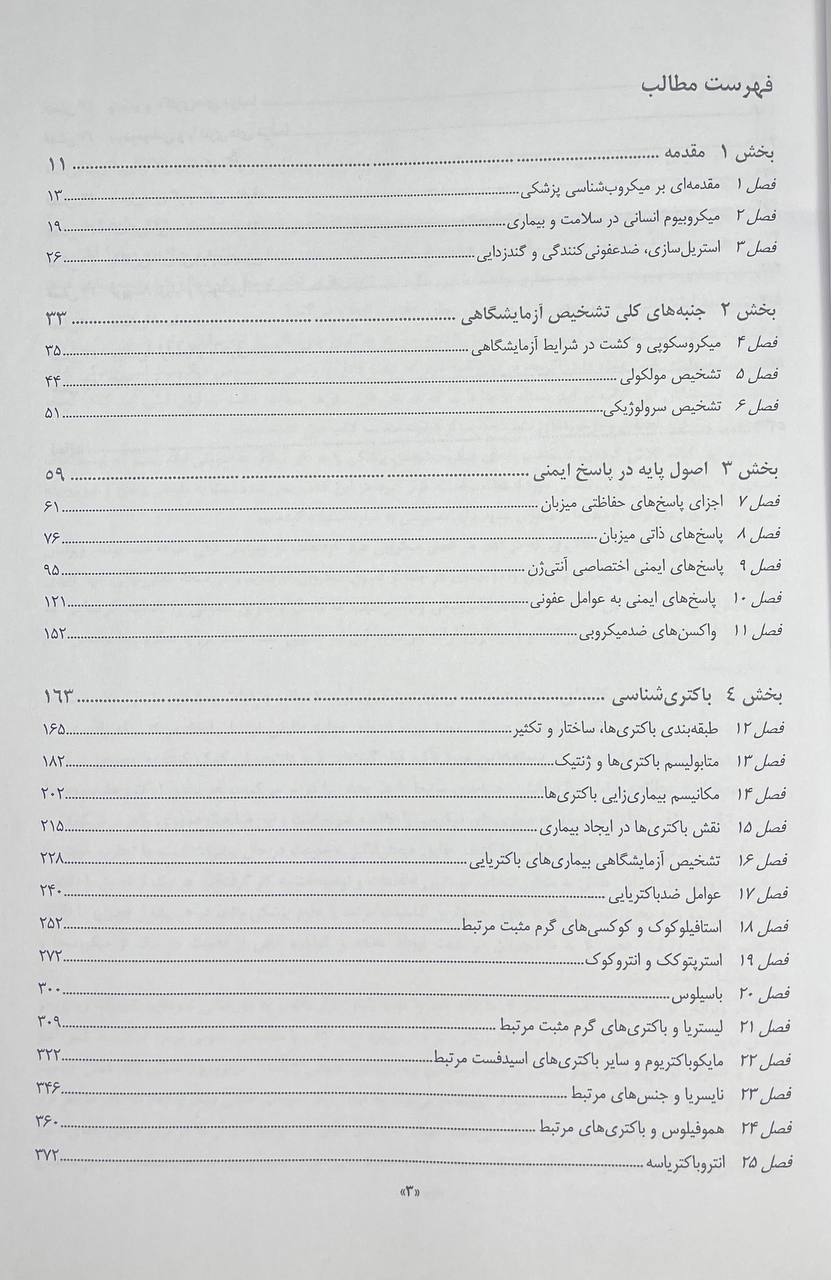 فهرست مطالب
بخش ۱ مقدمه ........ ۱۱
فصل ۱ مقدمه‌ای بر میکروب‌شناسی پزشکی ........ ۱۳
فصل ۲ میکروبیوم انسانی در سلامت و بیماری ........ ۱۹
فصل ۳ استریل‌سازی، ضدعفونی‌کنندگی و گندزدایی ........ ۲۶
بخش ۲ جنبه‌های کلی تشخیص آزمایشگاهی ........ ۳۳
فصل ۴ میکروسکوپی و کشت در شرایط آزمایشگاهی ........ ۳۵
فصل ۵ تشخیص مولکولی ........ ۴۴
فصل ۶ تشخیص سرولوژیکی ........ ۵۱
بخش ۳ اصول پایه در پاسخ ایمنی ........ ۵۹
فصل ۷ اجزای پاسخ‌های حفاظتی میزبان ........ ۶۱
فصل ۸ پاسخ‌های ذاتی میزبان ........ ۷۶
فصل ۹ پاسخ‌های ایمنی اختصاصی آنتی‌ژن ........ ۹۵
فصل ۱۰ پاسخ‌های ایمنی به عوامل عفونی ........ ۱۲۱
فصل ۱۱ واکسن‌های ضدمیکروبی ........ ۱۵۲
بخش ٤ باکتری‌شناسی ........ ۱٦۳
فصل ۱۲ طبقه‌بندی باکتری‌ها، ساختار و تکثیر ........ ۱۶۵
فصل ۱۳ متابولیسم باکتری‌ها و ژنتیک ........ ۱۸۲
فصل ۱۴ مکانیسم بیماری‌زایی باکتری‌ها ........ ۲۰۲
فصل ۱۵ نقش باکتری‌ها در ایجاد بیماری ........ ۲۱۵
فصل ۱۶ تشخیص آزمایشگاهی بیماری‌های باکتریایی ........ ۲۲۸
فصل ۱۷ عوامل ضدباکتریایی ........ ۲۴۰
فصل ۱۸ استافیلوکوک و کوکسی‌های گرم مثبت مرتبط ........ ۲۵۲
فصل ۱۹ استرپتوکک و انتروکوک ........ ۲۷۲
فصل ۲۰ باسیلوس ........ ۳۰۰
فصل ۲۱ لیستریا و باکتری‌های گرم مثبت مرتبط ........ ۳۰۹
فصل ۲۲ مایکوباکتریوم و سایر باکتری‌های اسیدفست مرتبط ........ ۳۲۲
فصل ۲۳ نایسریا و جنس‌های مرتبط ........ ۳۴۶
فصل ۲۴ هموفیلوس و باکتری‌های مرتبط ........ ۳۶۰
فصل ۲۵ انتروباکتریاسه ........ ۳۷۲
«۳»